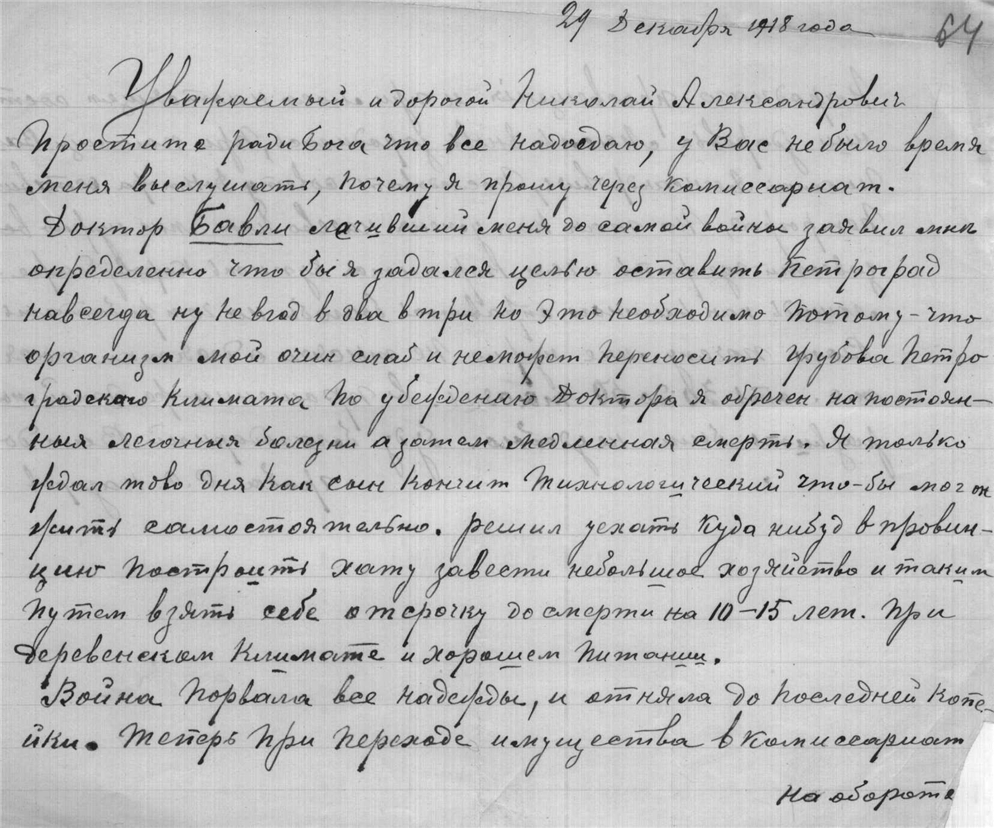 29 Декабря 1918 года 64
Уважаемый и дорогой Николай Александрович
Простите ради Бога что все надоедаю, у Вас не было время
меня выслушать, почему я прошу через комиссариат.
Доктор Бавли лачивший меня до самой войны заявил мне
определенно что бы я задался целью оставить Петроград
навсегда ну не в год в два в три но это необходимо потому-что
организм мой очин слаб и неможет переносить грубова Петро
градскаго климата по убеждению Доктора я обречен на постоян-
ныя легочныя болезни а затем медленная смерть. Я только
ждал тово дня как сын кончит Тихнологический что-бы мог он
жить самостоятельно. решил уехать куда нибуд в провин-
цию построить хату завести небольшое хозяйство и таким
путем взять себе отсрочку до смерти на 10-15 лет. при
деревенском климате и хорошем питании.
Война порвала все надежды, и отняла до последней копе-
йки. теперь при переходе имущества в комиссариат
на обороте